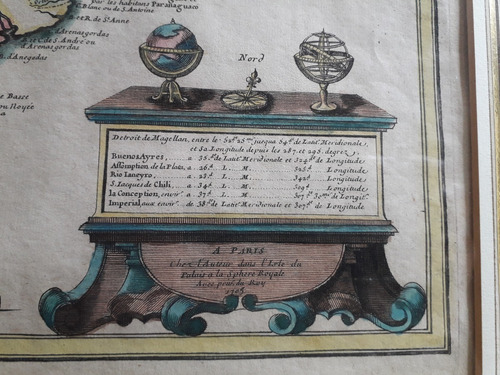 par les habitans Parabaguacu
C. Blanc ou de S. Antoine
et R. de Ste. Anne
d'arenasgordas
et C. de S. André ou
d'Arenas gordas
d'Anegadas
Nord
Detroit de Magellan, entre le 52d. 25m. jusqu'a 54d. de Latit. Meridionale,
et sa Longitude depuis les 287. et 295. degrez
Buenos Ayres, a 35d. de Latit. Meridionale et 324d. de Longitude
Assomption de la Plata, a 26d. L. M. 325d. Longitude
Rio Ianeyro, a 23d. L. M. 342d. Longitude
S. Iacques de Chili, a 34d. L. M. 309d. Longitude
la Conception, envir. a 37d. L. M. 307d. 30m. de Longit.
Imperial, aux envir. de 38d. de Latit. Meridionale et 307d. de Longitude
A PARIS
Chez l'Auteur dans l'Isle du
Palais a la Sphere Royale
Avec privil. du Roy
1705